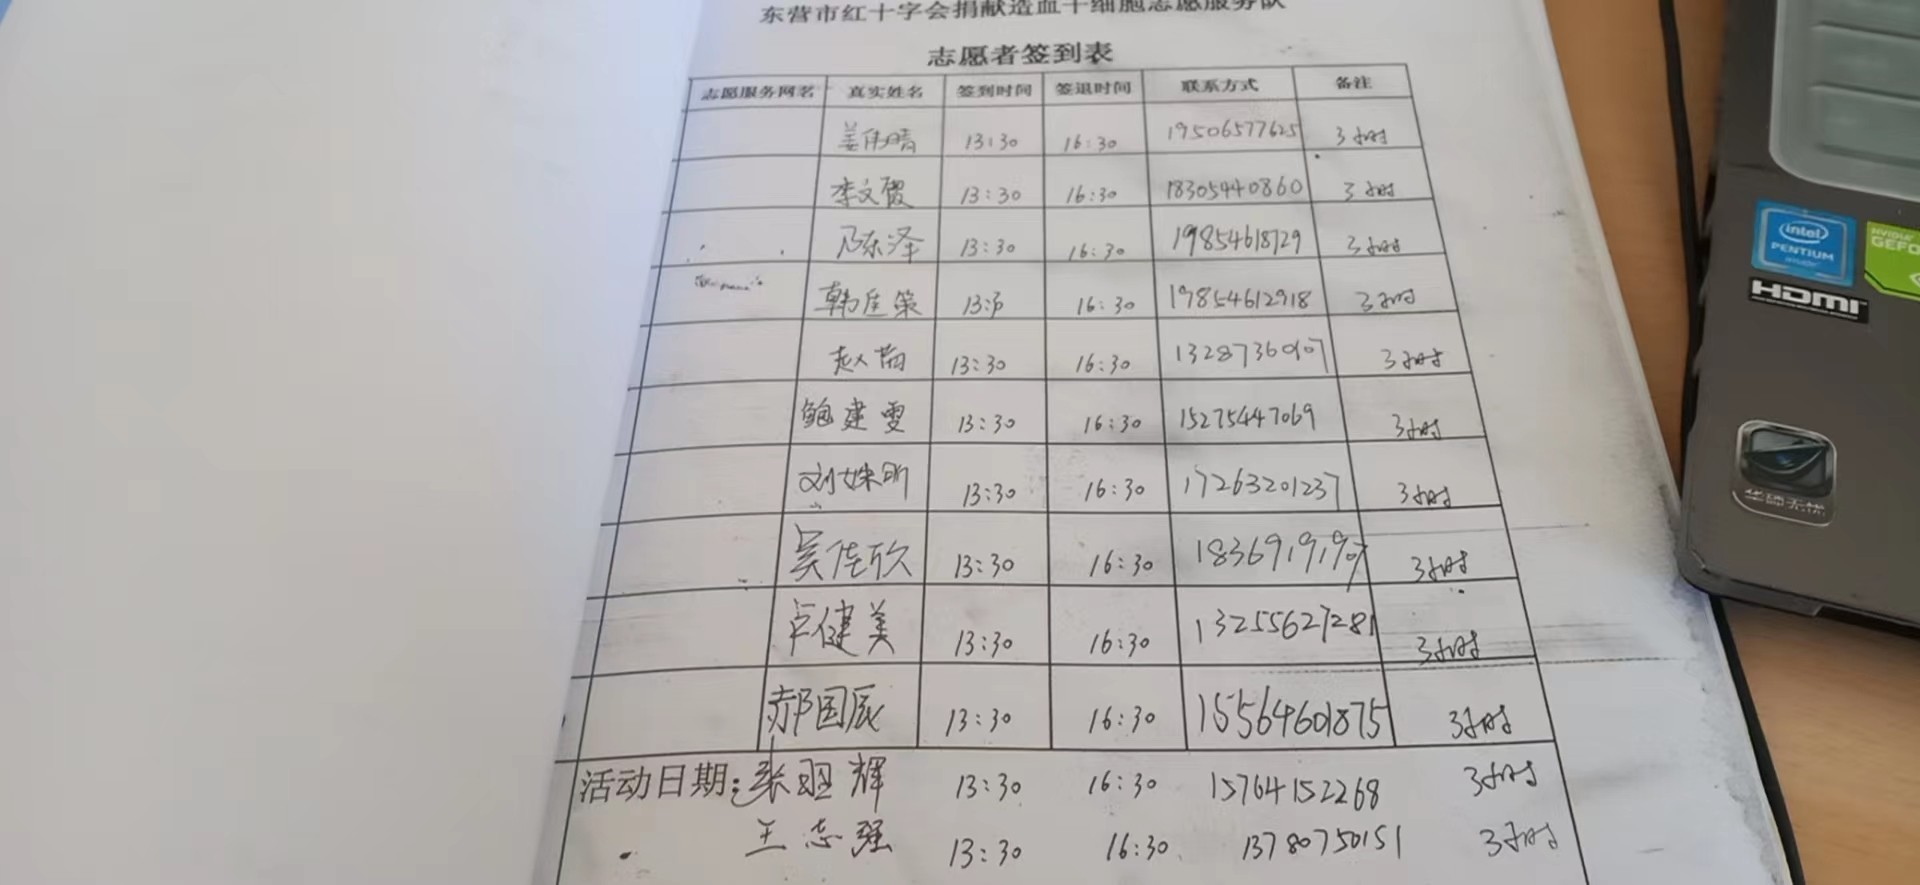 东营市红十字会捐献造血干细胞志愿服务队
志愿者签到表
志愿服务网名 真实姓名 签到时间 签退时间 联系方式 备注
姜伟晴 13:30 16:30 19506577625 3小时
李文霞 13:30 16:30 18305440860 3小时
乃东泽 13:30 16:30 19854618729 3小时
韩佳策 16:30 19854612918 3小时
赵 13:30 16:30 3小时
鲍建雯 13:30 16:30 15275447069 3小时
刘姝昕 13:30 16:30 17263201237 3小时
吴佳欣 13:30 16:30 18369191907 3小时
卢健美 13:30 16:30 13255627281 3小时
郝国辰 13:30 16:30 15564601875 3小时
活动日期: 张 辉 13:30 16:30 15764152268 3小时
王志强 13:30 16:30 13780750151 3小时
intel
PENTIUM
HDMI
NVIDIA
GEFO
华硕无忧